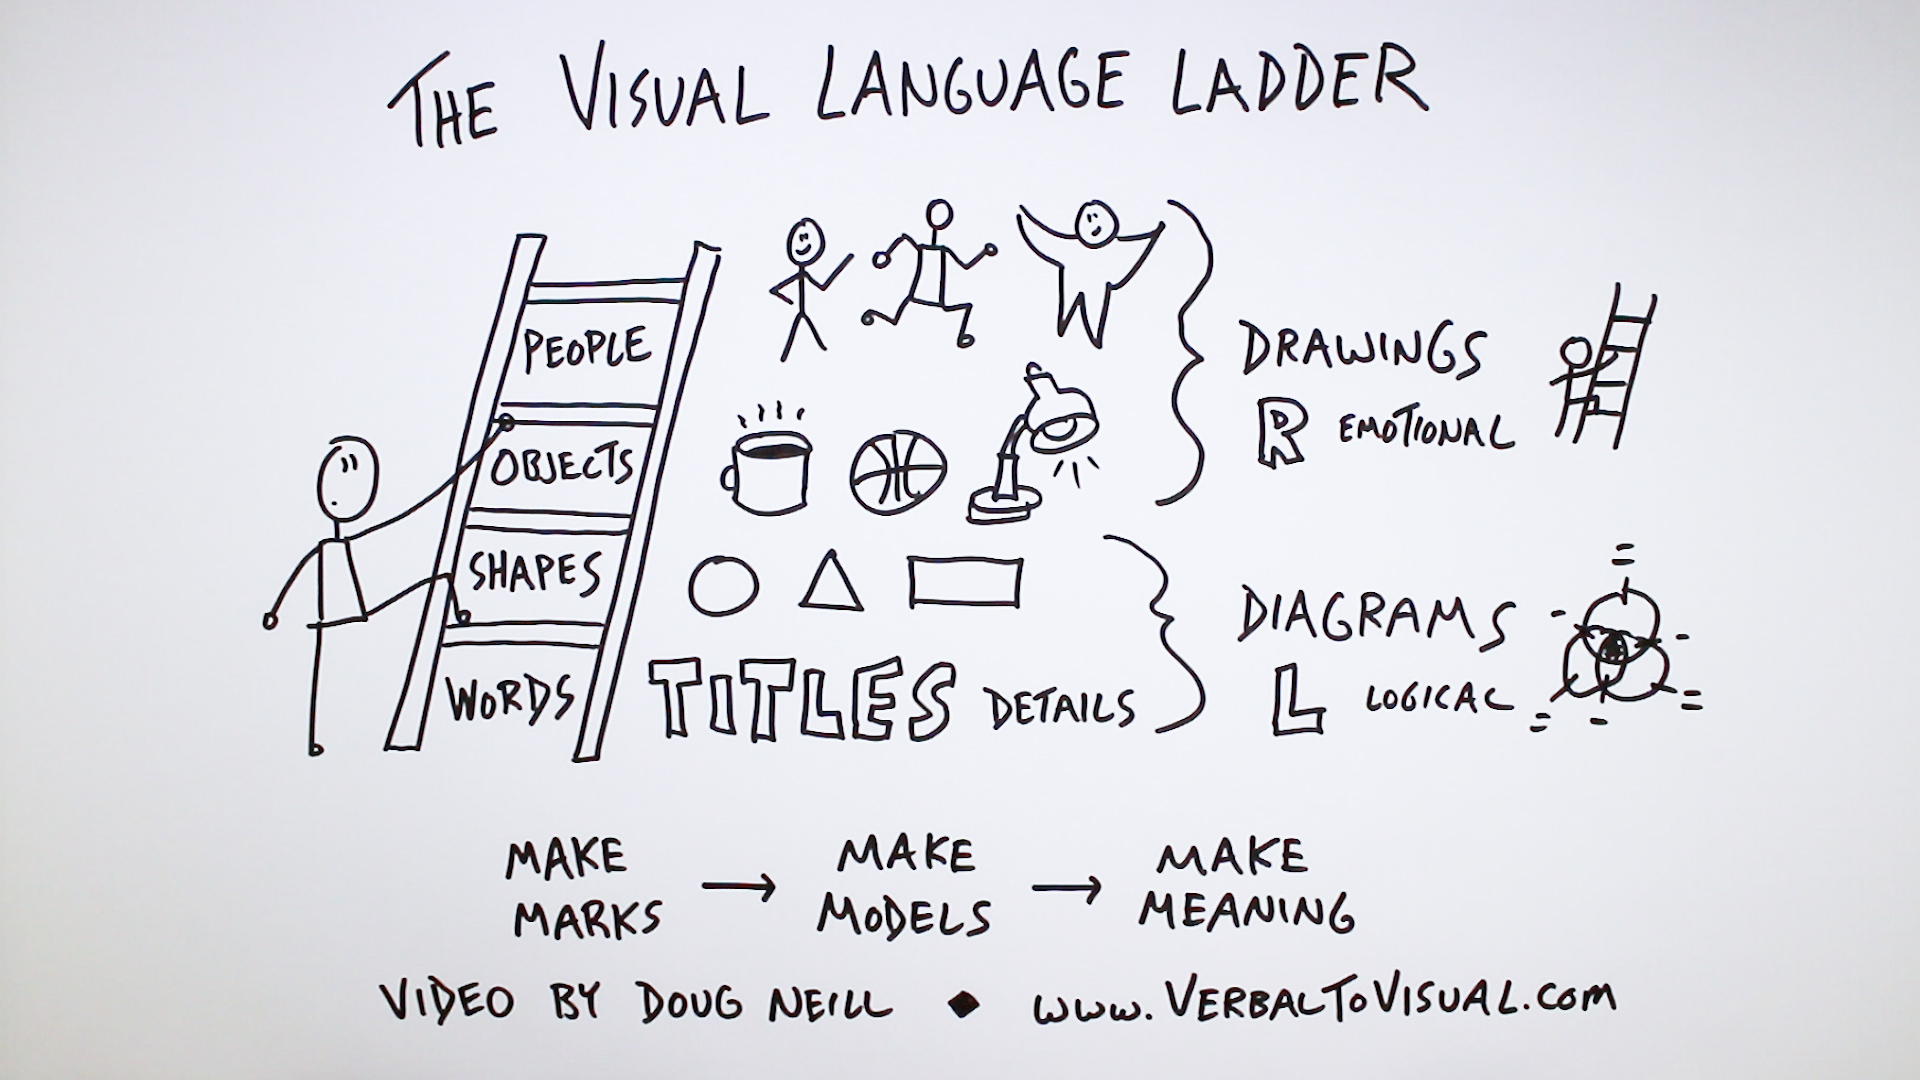 THE VISUAL LANGUAGE LADDER
PEOPLE
OBJECTS
SHAPES
WORDS
TITLES DETAILS
DRAWINGS
R EMOTIONAL
DIAGRAMS
L LOGICAL
MAKE
MARKS
→
MAKE
MODELS
→
MAKE
MEANING
VIDEO BY DOUG NEILL ◆ www.VERBALTOVISUAL.COM